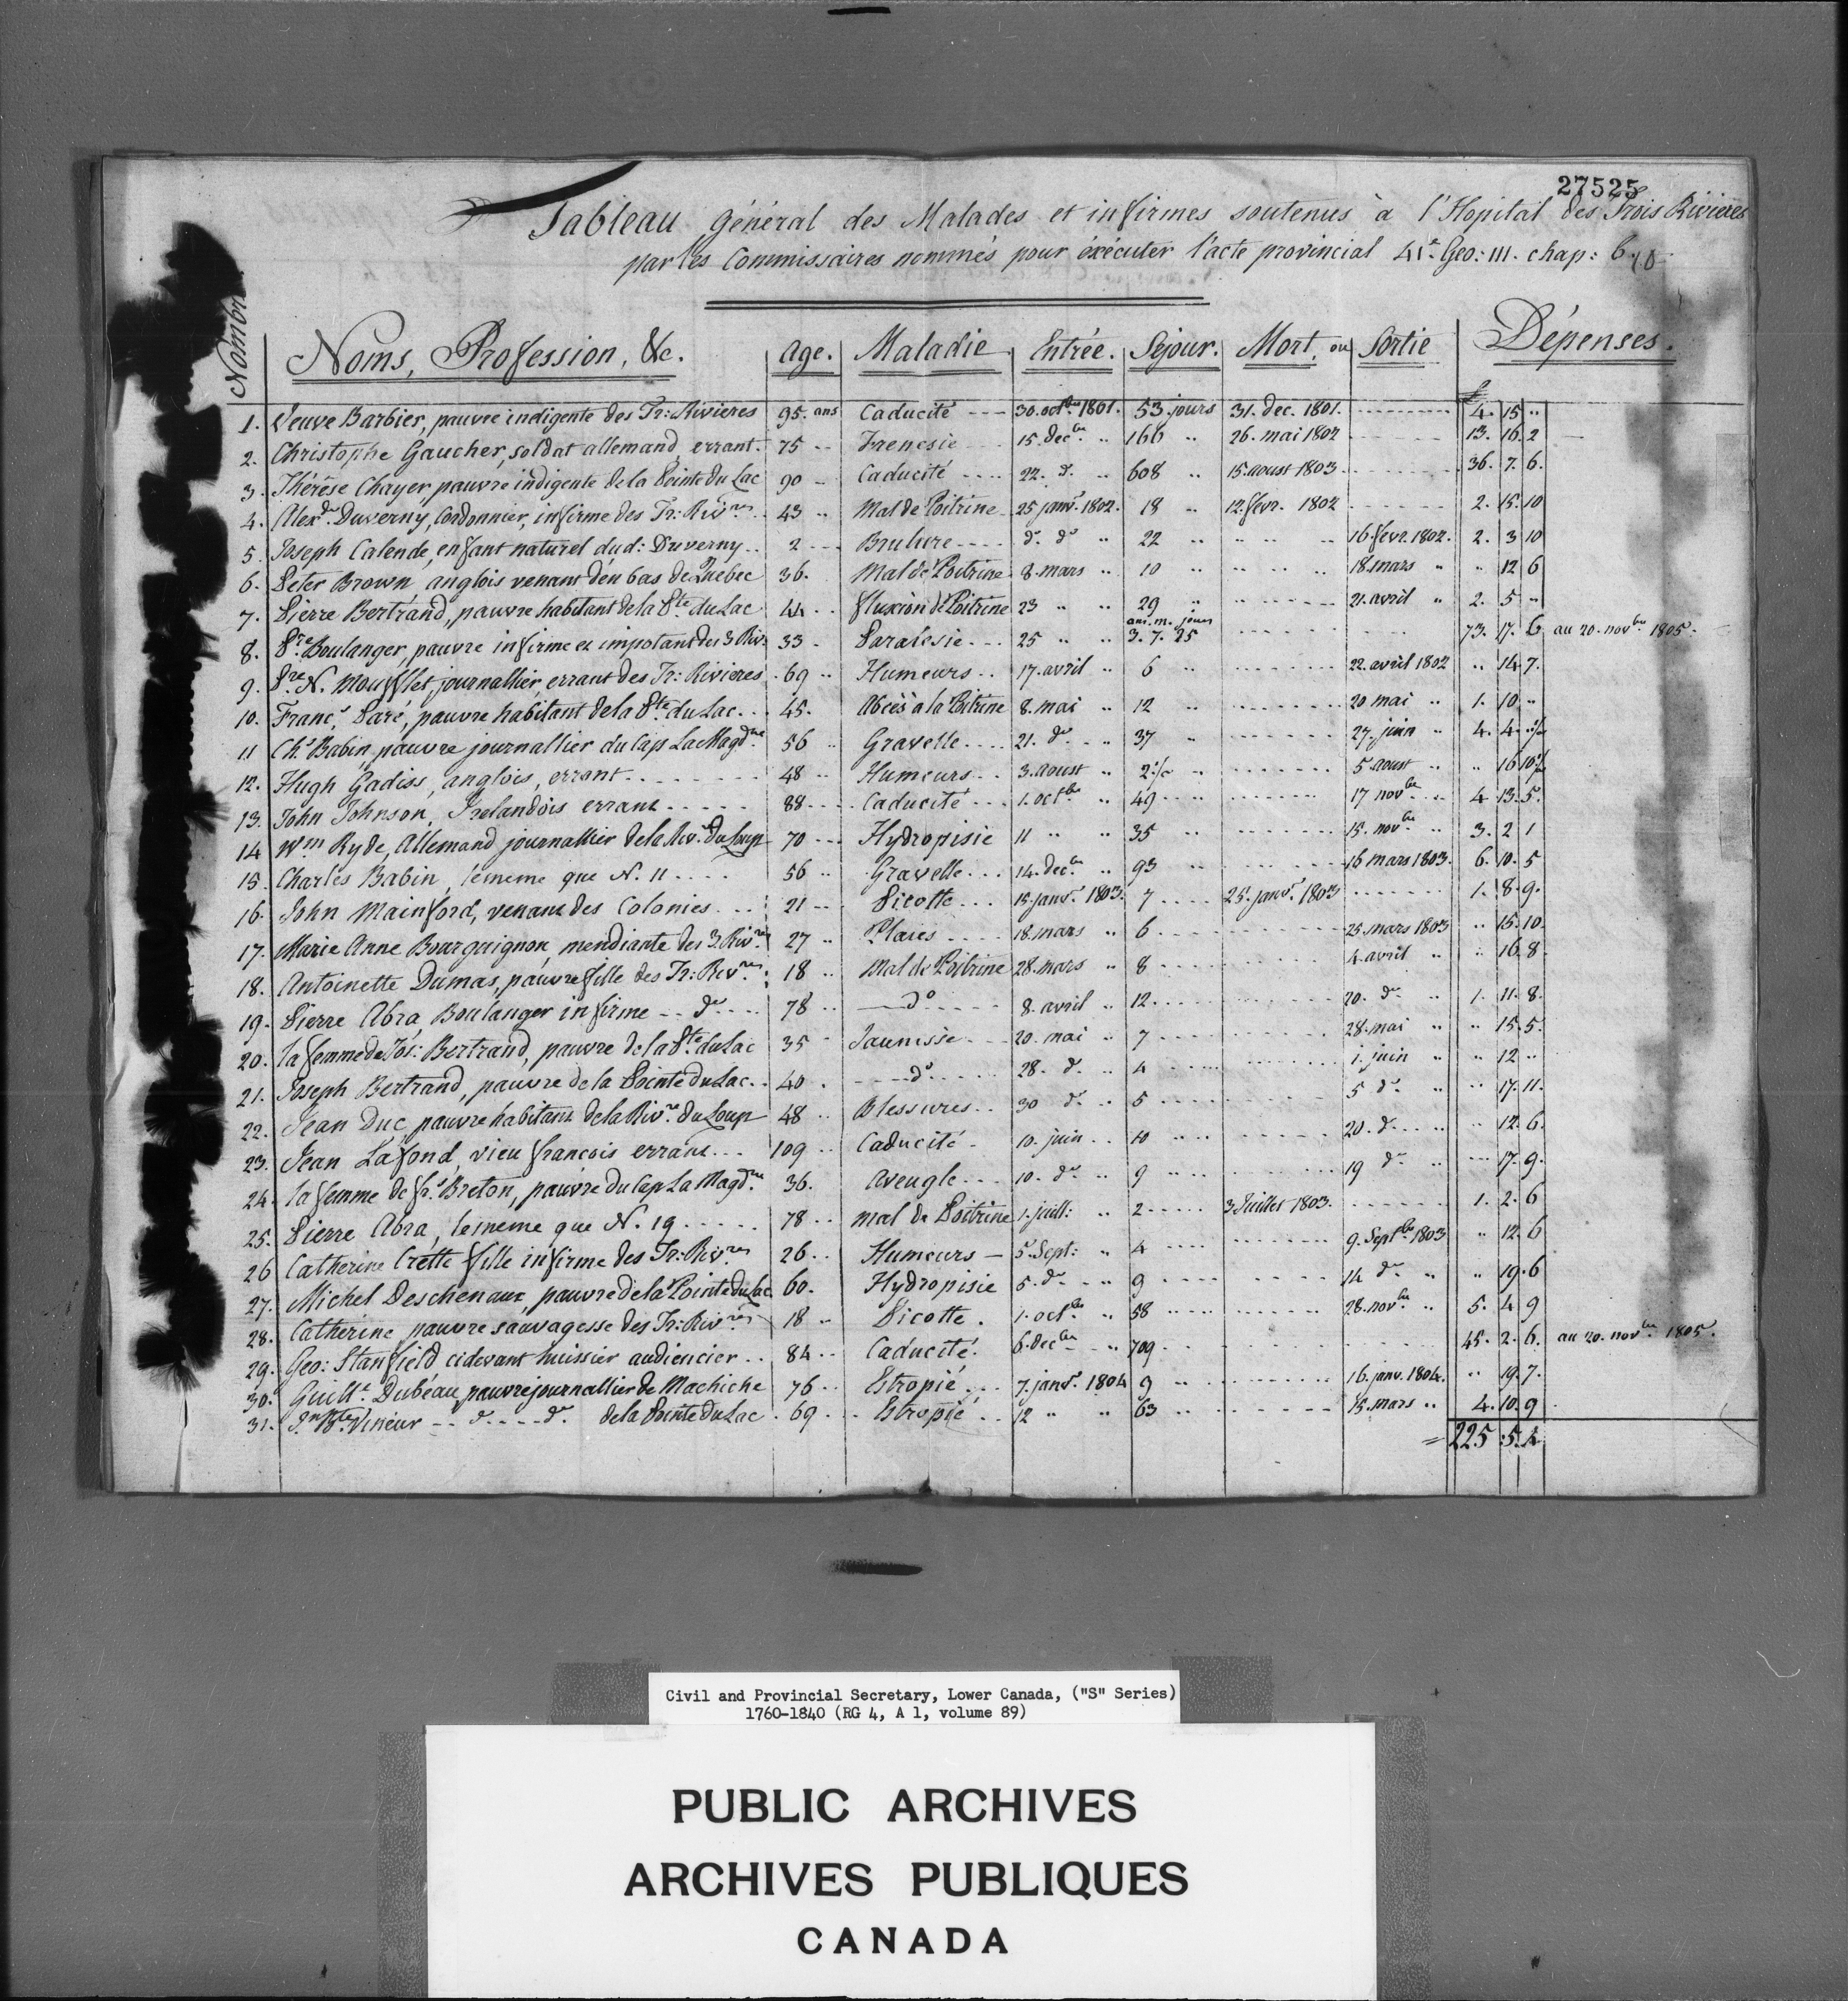 27525
Tableau général des Malades et infirmes soutenus à l'Hopital des Trois Rivieres
par les Commissaires nommés pour éxécuter l'acte provincial 41e Geo: III. chap: 6.
Nombre Noms, Profession, &c. Age. Maladie Entrée. Séjour. Mort, ou Sortie Dépenses.
£
1. Veuve Barbier, pauvre indigente des Tr: Rivieres 95. ans Caducité --- 30. octbre 1801. 53 jours 31. dec. 1801. -------- 4. 15 "
2. Christophe Gaucher, soldat allemand, errant. 75 -- Frenesie --- 15. decbre " 166 " 26. mai 1802 ------ 13. 16. 2
3. Thérèse Chayer, pauvre indigente de la Pointe du Lac 90 -- Caducité ---- 22. do " 608 " 15. aoust 1803. ------ 36. 7. 6.
4. Alexdre Duverny, Cordonnier, infirme des Tr: Rivres 43 " Mal de Poitrine 25 janvr. 1802. 18 " 12. fevr. 1802 ------ 2. 15. 10
5. Joseph Calende, enfant naturel dud: Duverny.. 2 --- Brulure ---- do do " 22 " " " " 16. fevr. 1802. 2. 3 10
6. Peter Brown anglois venant d'en bas de Quebec 36. Mal de Poitrine 8. mars " 10 " " " " 18. mars " " 12 6
7. Pierre Bertrand, pauvre habitant de la Pte du Lac 44 .. fluxion de Poitrine 23 " " 29 " " ------ 21. avril " 2. 5 "
ans. m. jours
8. Pre Boulanger, pauvre infirme et impotant des 3 Riv: 33 - Paralesie --- 25 " " 3. 7. 25 ------ 73. 17. 6 au 20. novbre 1805.
9. Pre N. Moufflet, journallier, errant des Tr: Rivieres . 69 " Humeurs .. 17. avril " 6 " ------ 22. avril 1802 " 14 7.
10. Francs Paré, pauvre habitant de la Pte du Lac ... 45. Abcès a la Poitrine 8. mai " 12 " ------ 20 mai " 1. 10 "
11 Chs Babin, pauvre journallier du Cap La Magdne 56 " Gravelle .... 21. do " 37 " ------ 27. juin " 4. 4.
12. Hugh Gadiss, anglois, errant ........ 48 " Humeurs .. 3. aoust " 2 " ------ 5 aoust " " 16 10
13. John Johnson, Irelandois errant ----- 88 --- Caducité ... 1. octbre " 49 ------ 17 novbre " 4 13. 5.
14 Wm Ryde, Allemand journallier de la Rivre Du Loup 70 --- Hydropisie 11 " " 35 " ------ 15. novbre " 3. 2 1
15. Charles Babin, le meme que N. 11 .... 56 " Gravelle ... 14. decbre " 93 " ------ 16 mars 1803. 6. 10. 5
16. John Mainford, venant des Colonies ... 21 -- Picotte ... 15. janvr. 1803. 7 .... 25. janvr. 1803 ------ 1. 8. 9.
17. Marie Anne Bourguignon, mendiante des 3. Rivres 27 " Plaies ---- 18. mars " 6 ------ 25. mars 1803 " 15. 10.
18. Antoinette Dumas, pauvre fille des Tr: Rivres : 18 " Mal de Poitrine 28. mars " 8 ------ 4. avril " " 16. 8.
19. Pierre Abra, Boulanger infirme -- do .... 78 " --- do .... 8. avril " 12 ------ 20. do " 1. 11. 8.
20. la femme de Jos: Bertrand, pauvre de la Pte du Lac 35 " Jaunisse --- 20. mai " 7 ------ 28. mai " " 15. 5.
21. Joseph Bertrand, pauvre de la Pointe du Lac .. 40 . ---- do .... 28. do " 4 ------ 1. juin " " 12 "
22. Jean Duc, pauvre habitant de la Rivre Du Loup 48 " Blessures .. 30 do " 5 ------ 5 do " " 17. 11.
23. Jean Lafond, vieu francois errant ... 109 " Caducité - 10. juin .. 10 ------ 20. do " " 12. 6.
24. la femme de frs Breton, pauvre du Cap La Magdne 36. Aveugle --- 10. do " 9 ------ 19 do " " 17. 9.
25. Pierre Abra, le meme que N. 19 ..... 78 .. mal de Poitrine 1. juill: " 2 ---- 3 Juillet 1803. ------ 1. 2. 6
26 Catherine Crette fille infirme des Tr: Rivres 26 .. Humeurs -- 5. Sept: " 4 ------ 9. Septbre 1803 " 12. 6
27. Michel Deschenaux, pauvre de la Pointe du Lac 60. Hydropisie 5. do " 9 ------ 14 do " " 19. 6
28. Catherine, pauvre sauvagesse des Tr: Rivres 18 " Picotte . 1. octbre " 58 ------ 28. novbre " 5. 4 9
29. Geo: Stanfield cidevant huissier audiencier .. 84 .. Caducité. 6. decbre " 709 ------ 45. 2. 6. au 20. novbre 1805.
30. Guillte Dubéau, pauvre journallier de Machiche 76 .. Estropié ... 7. janvr. 1804 9 ------ 16. janv. 1804. " 19. 7.
31. Jn Bte Vineur -- do .... do de la Pointe du Lac . 69 .. Estropié .. 12 " " 63 ------ 15. mars " 4. 10. 9
= 225 : 5. 4
Civil and Provincial Secretary, Lower Canada, ("S" Series)
1760-1840 (RG 4, A 1, volume 89)
PUBLIC ARCHIVES
ARCHIVES PUBLIQUES
CANADA